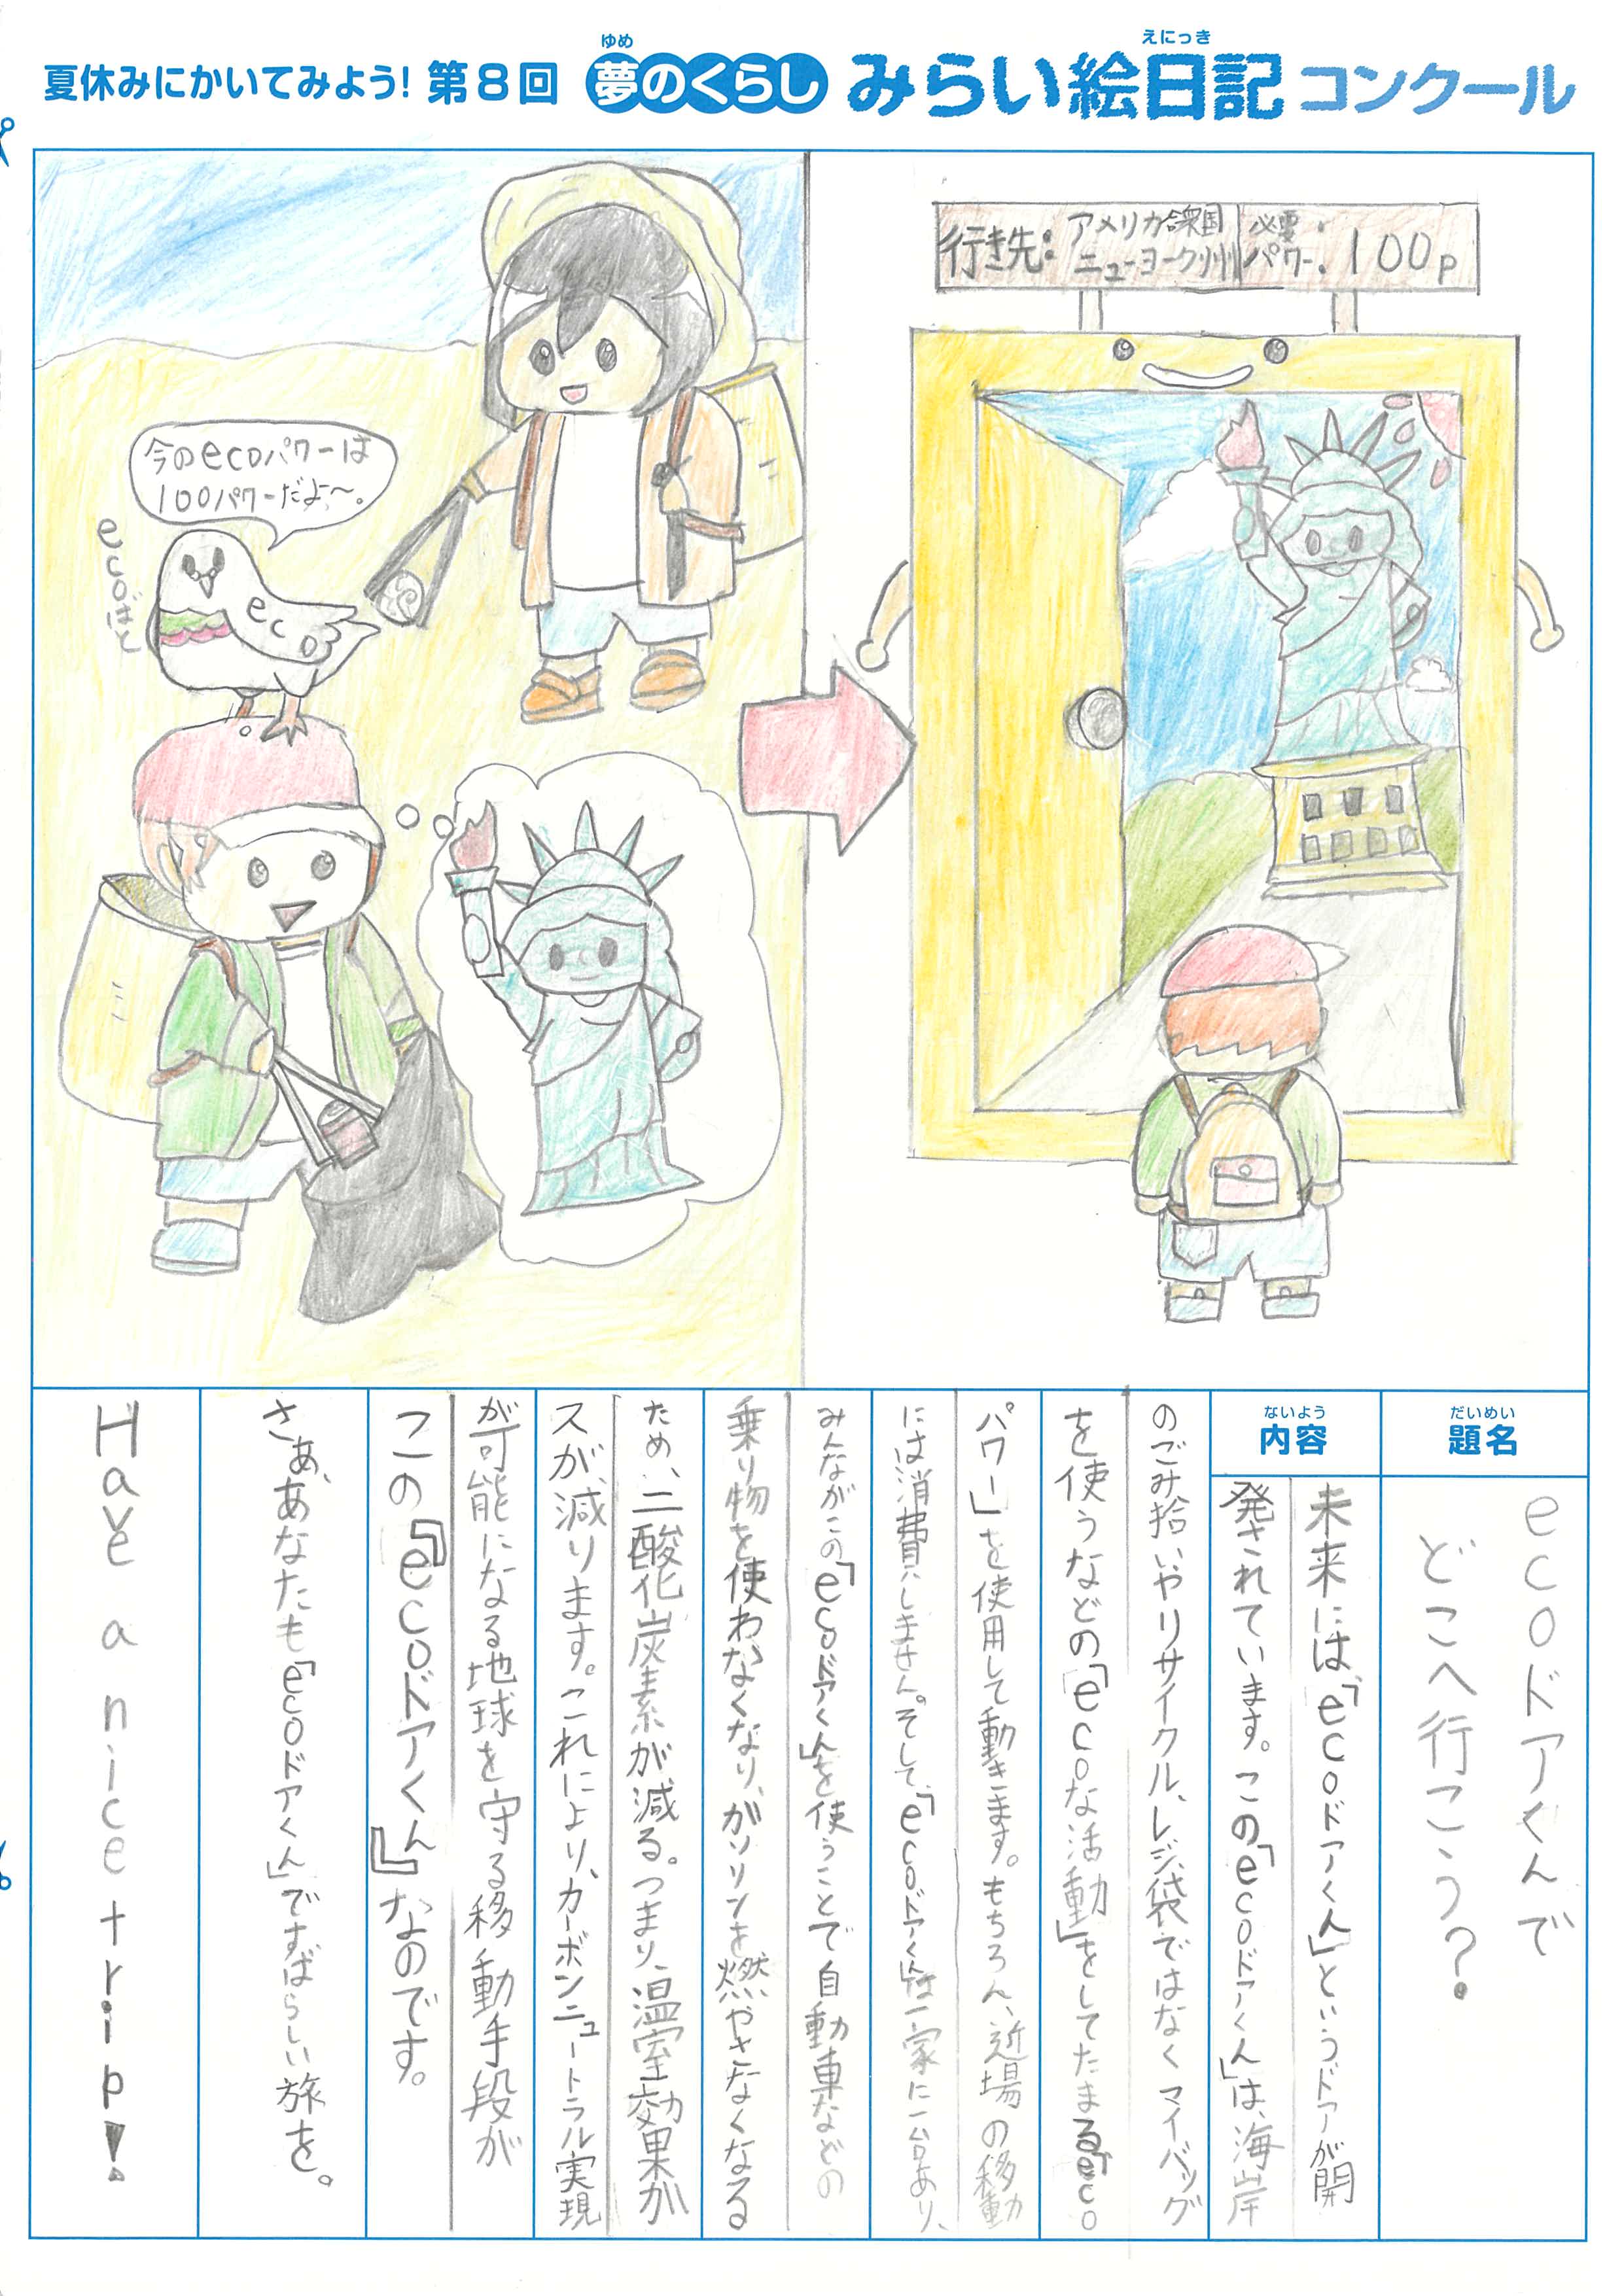 夏休みにかいてみよう! 第8回 夢のくらし みらい絵日記 コンクール
ゆめ
えにっき
行き先: アメリカ合衆国 ニューヨーク州 必要パワー: 100p
今のecoパワーは
100パワーだよ〜。
ecoばと
eco
だいめい
題名
ecoドアくんで
どこへ行こう?
ないよう
内容
未来には、「ecoドアくん」というドアが開
発されています。この「ecoドアくん」は、海岸
のごみ拾いやリサイクル、レジ袋ではなくマイバッグ
を使うなどの「ecoな活動」をしてたまる「eco
パワー」を使用して動きます。もちろん、近場の移動
には消費しません。そして、「ecoドアくん」は一家に一台あり、
みんながこの「ecoドアくん」を使うことで自動車などの
乗り物を使わなくなり、ガソリンを燃やさなくなる
ため、二酸化炭素が減る。つまり、温室効果が
スが減ります。これにより、カーボンニュートラル実現
が可能になる地球を守る移動手段が
この『ecoドアくん』なのです。
さあ、あなたも「ecoドアくん」ですばらしい旅を。
Have a nice trip!